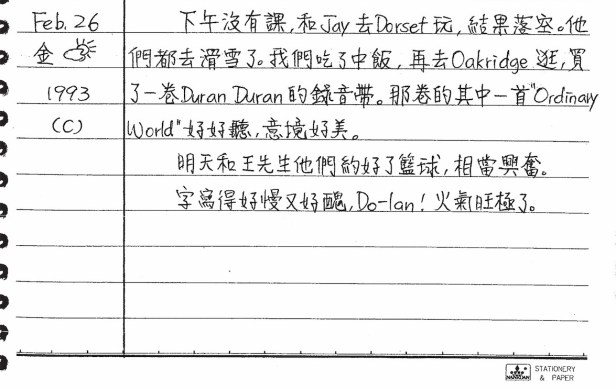 Feb. 26 下午沒有課,和Jay去Dorset玩,結果落空。他
金 們都去滑雪了。我們吃了中飯,再去Oakridge逛,買
1993 了一卷Duran Duran的錄音帶。那卷的其中一首"Ordinary
(C) World"好好聽,意境好美。
明天和王先生他們約好了籃球,相當興奮。
字寫得好慢又好醜,Do-lan!火氣旺極了。
NANKUAN STATIONERY
& PAPER